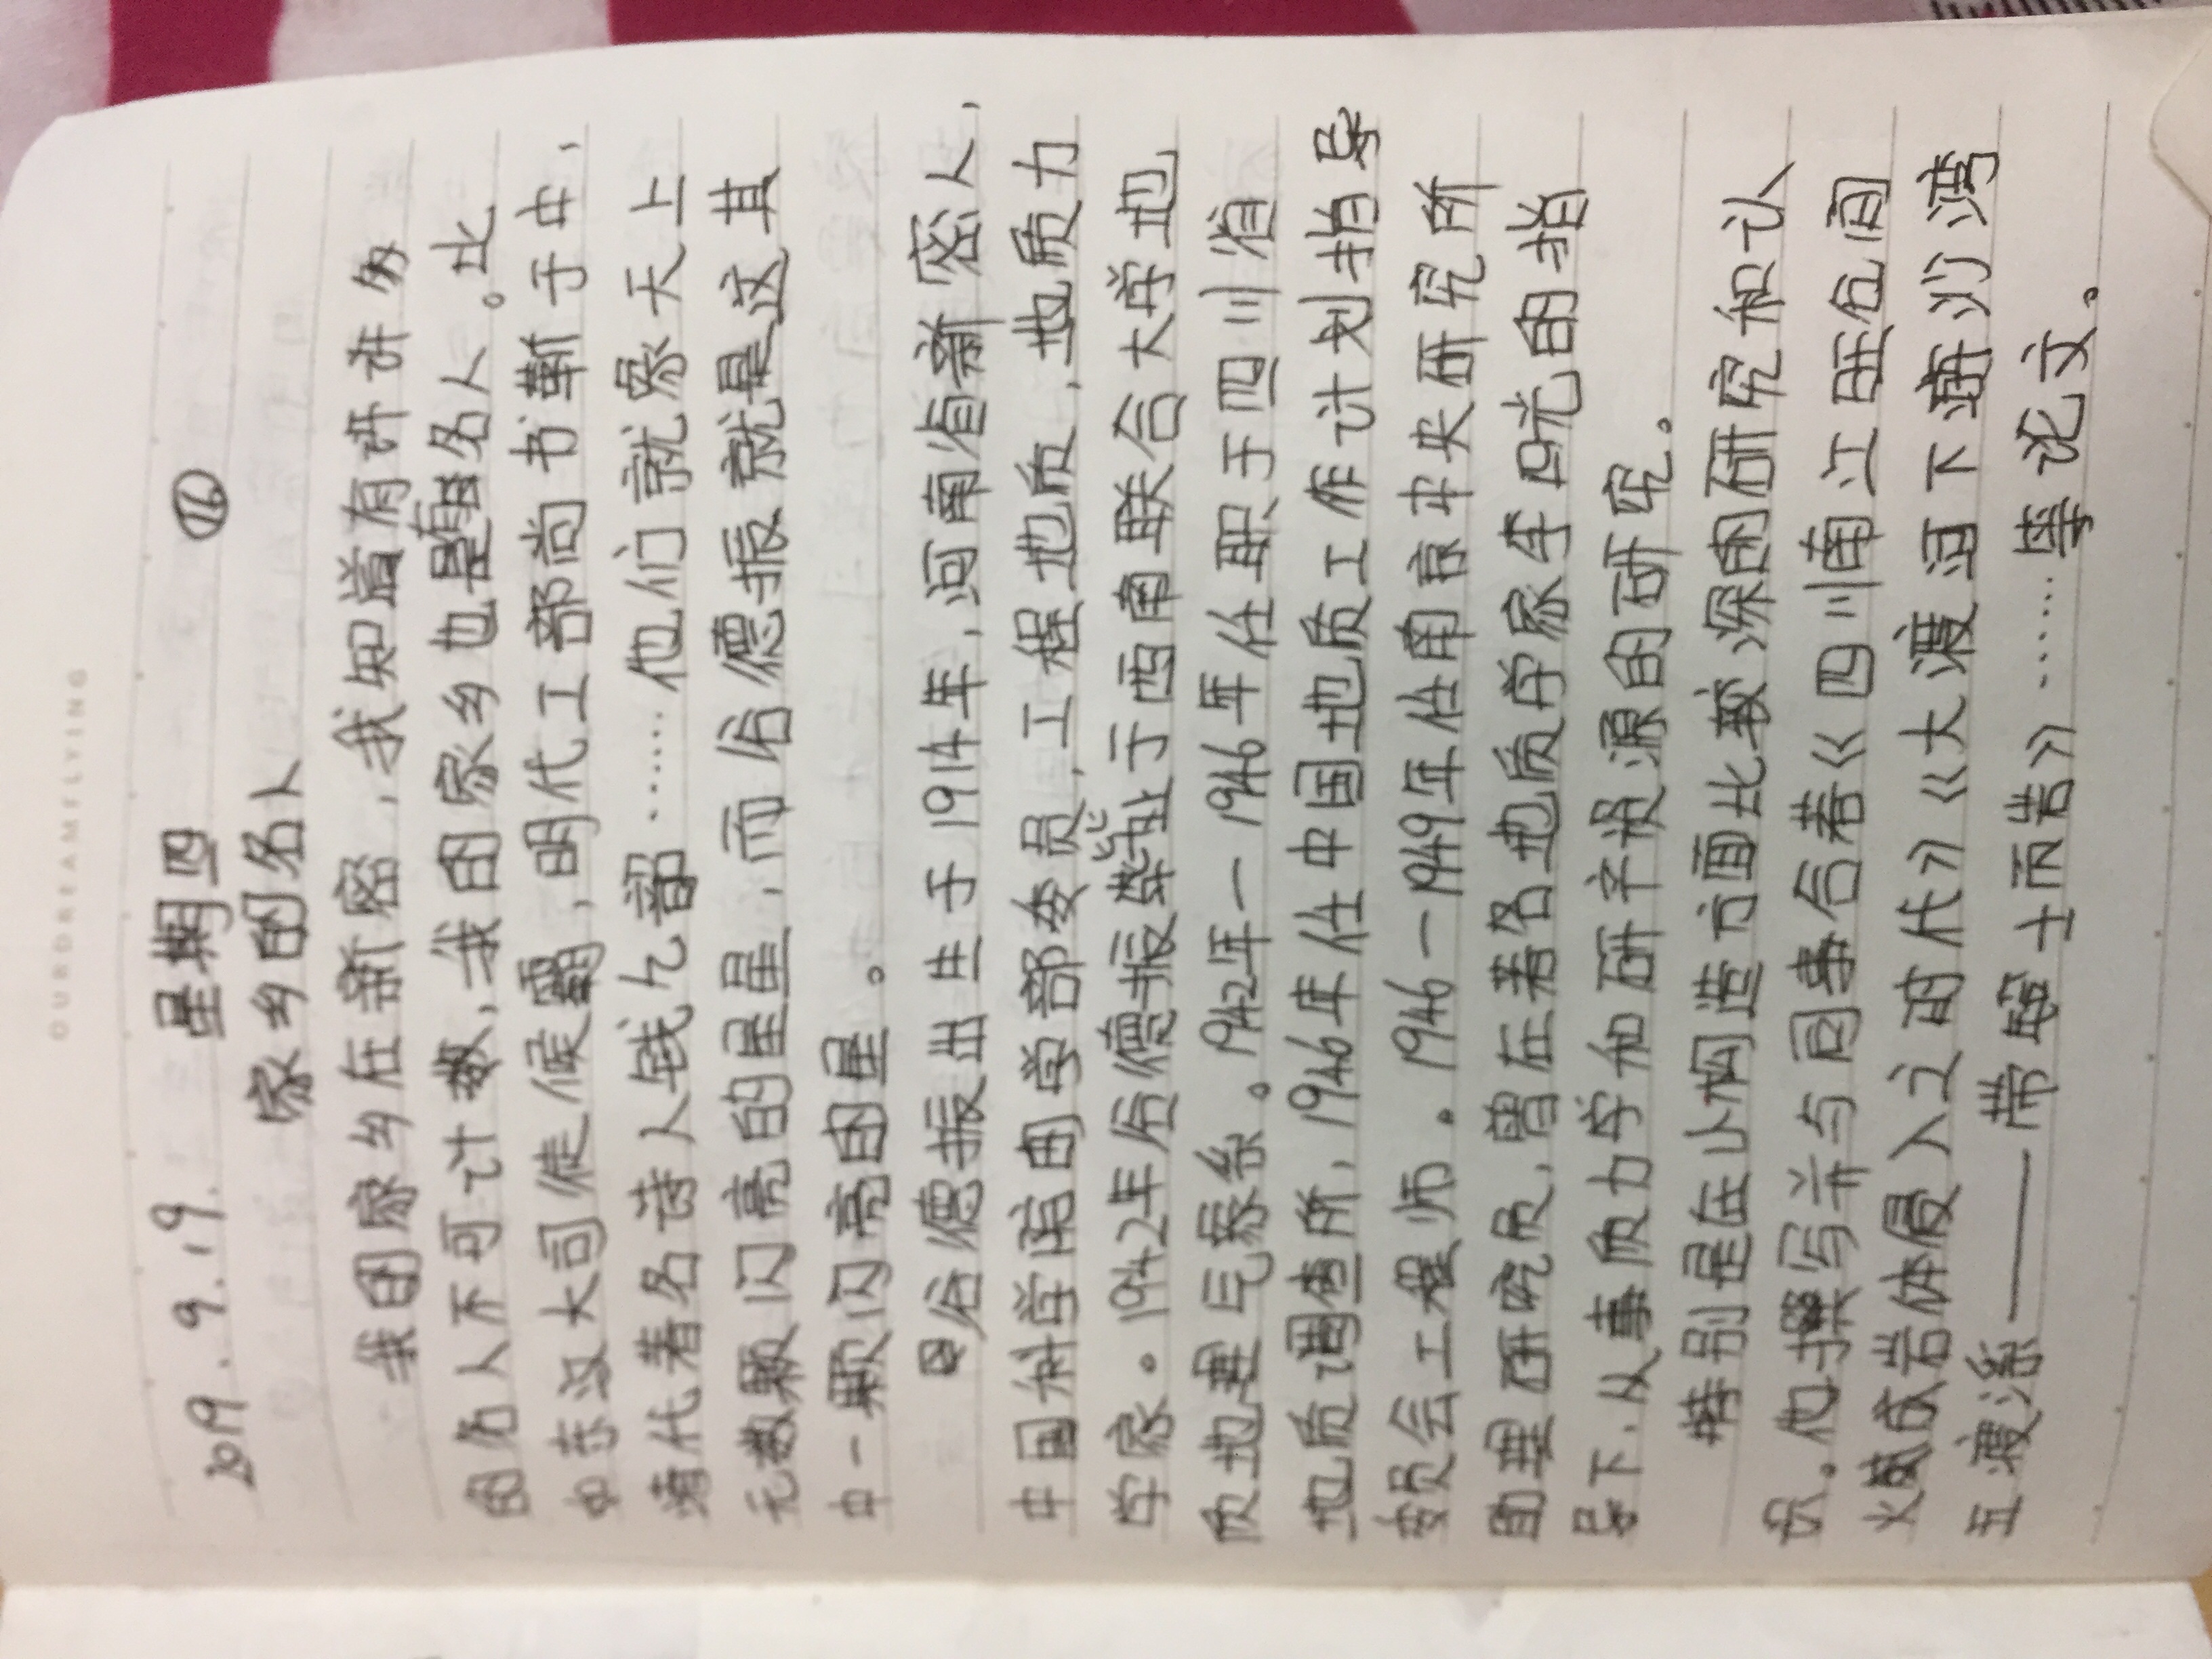 OURDREAMFLYING
2019.9.19. 星期四 ⑯
家乡的名人
我的家乡在新密，我知道有许许多多
的名人不可计数，我的家乡也是名人。比
如东汉大司徒候霸，明代工部尚书靳于中，
清代著名诗人钱九韶……他们就象天上
无数颗闪亮的星星，而谷德振就是这其
中一颗闪亮的星。
谷德振出生于1914年，河南省新密人，
中国科学院由学部委员，工程地质，地质力
学家。1942年谷德振毕业于西南联合大学地
质地理气象系。1942年—1946年任职于四川省
地质调查所，1946年任中国地质工作计划指导
委员会工程师。1946—1949年任南京中央研究所
助理研究质，曾在著名地质学家李四光的指
导下，从事质力学和矿产资源的研究。
特别是在小构造方面比较深的研究和认
识。他撰写并与同事合著《四川南江旺苍间
火成岩体侵入之时代》《大渡河下游沙湾
五渡溪——带 土而岩》……等论文。